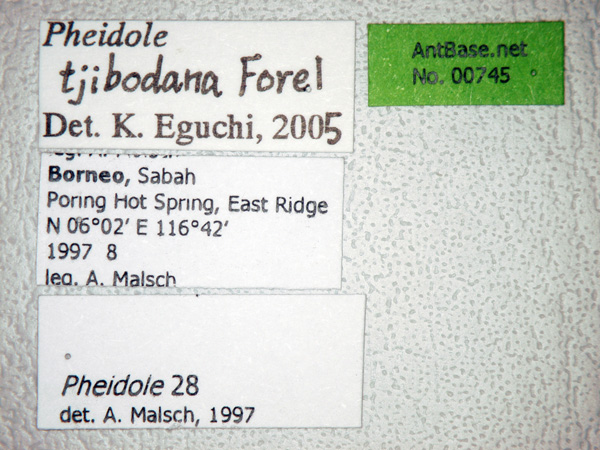 Pheidole
tjibodana Forel
Det. K. Eguchi, 2005
AntBase.net
No. 00745
Borneo, Sabah
Poring Hot Spring, East Ridge
N 06°02' E 116°42'
1997 8
leg. A. Malsch
Pheidole 28
det. A. Malsch, 1997